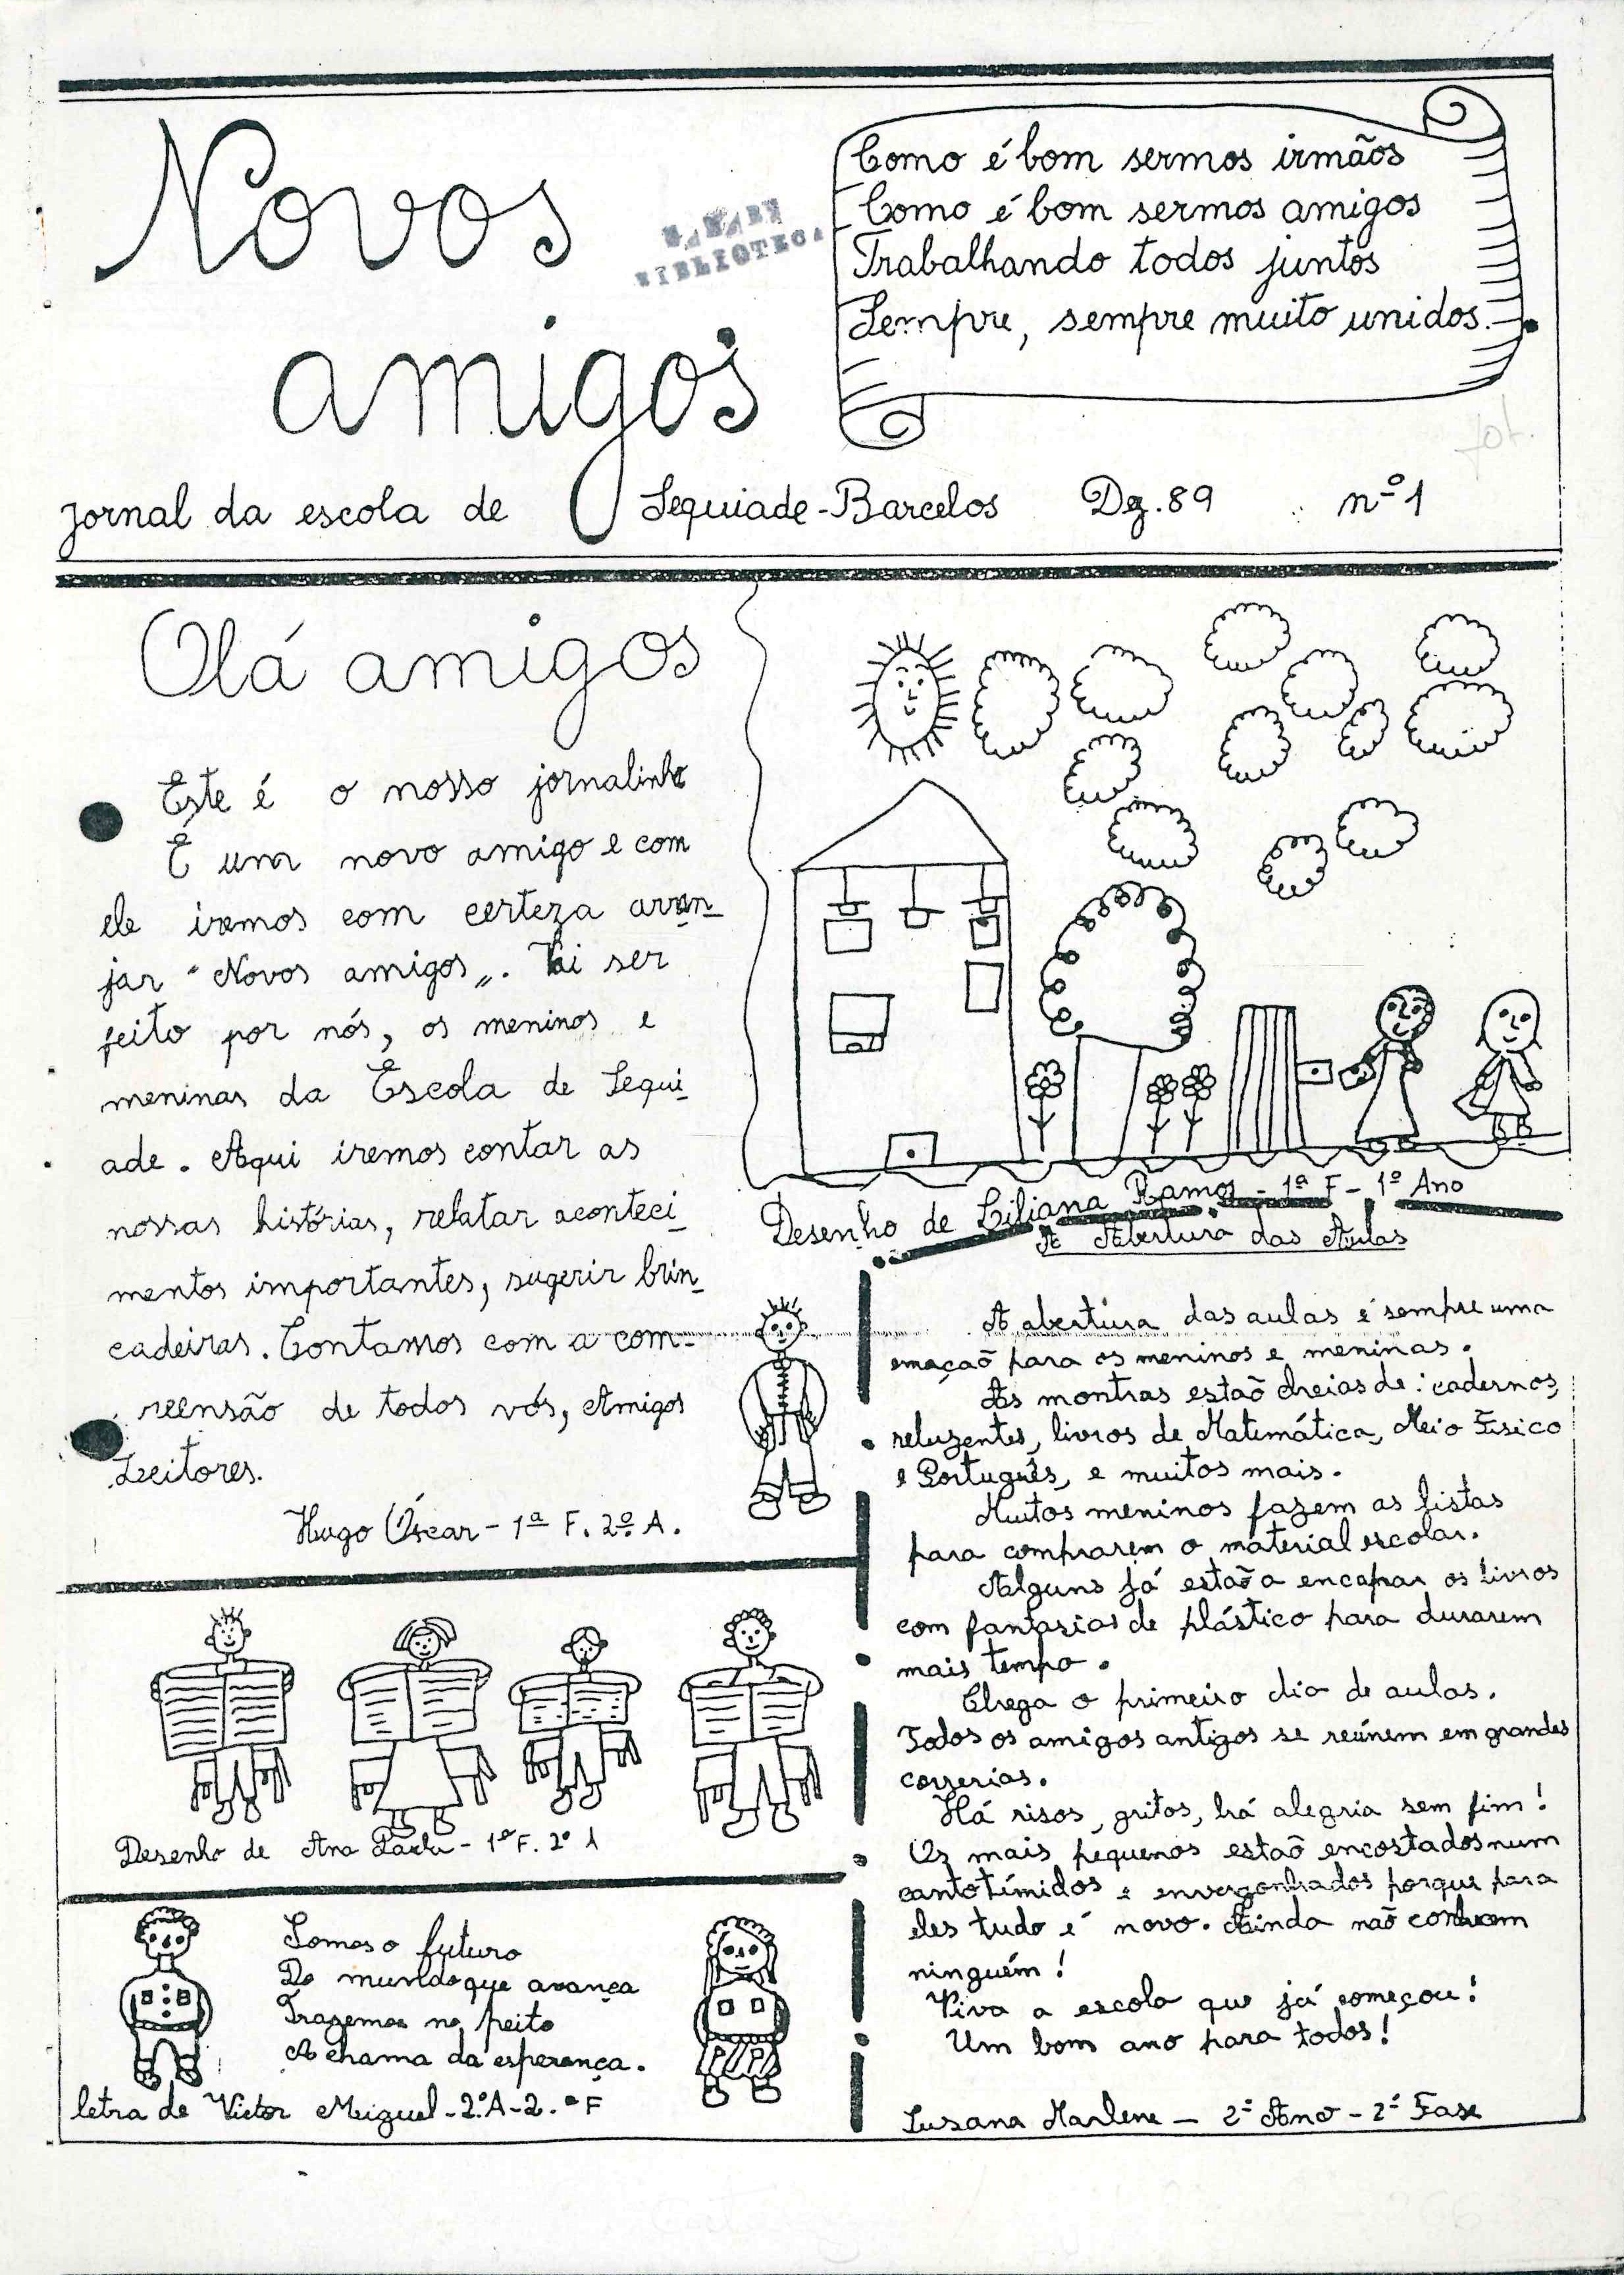 Novos
amigos
BIBLIOTECA
Como é bom sermos irmãos
Como é bom sermos amigos
Trabalhando todos juntos
Sempre, sempre muito unidos.
jornal da escola de Sequiade-Barcelos Dez.89 nº1
Olá amigos
Este é o nosso jornalinho
É um novo amigo e com
ele iremos com certeza arran_
jar "Novos amigos„. Vai ser
feito por nós, os meninos e
meninas da Escola de Sequi_
ade. Aqui iremos contar as
nossas histórias, relatar aconteci_
mentos importantes, sugerir brin_
cadeiras. Contamos com a com-
reensão de todos vós, Amigos
Leitores.
Hugo Óscar - 1ª F. 2º A.
Desenho de Ana Paula - 1ª F. 2º A
Somos o futuro
Do mundo que avança
Trazemos no peito
A chama da esperança.
letra de Victor Miguel - 2.º A - 2.ª F
Desenho de Liliana Ramos - 1ª F - 1º Ano
A Abertura das Aulas
A abertura das aulas é sempre uma
emoçaõ para os meninos e meninas.
As montras estaõ cheias de: cadernos
reluzentes, livros de Matemática, Meio Fisico
e Português, e muitos mais.
Muitos meninos fazem as listas
para comprarem o material escolar.
Alguns já estaõ a encapar os livros
com fantasias de plástico para durarem
mais tempo.
Chega o primeiro dia de aulas.
Todos os amigos antigos se reúnem em grandes
correrias.
Há risos, gritos, há alegria sem fim!
Os mais pequenos estaõ encostados num
canto tímidos e envergonhados porque para
eles tudo é novo. Ainda naõ conhecem
ninguém!
Viva a escola que já começou!
Um bom ano para todos!
Susana Marlene - 2º Ano - 2ª Fase